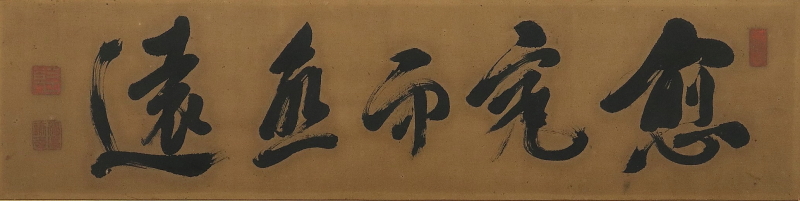 愈究而益遠